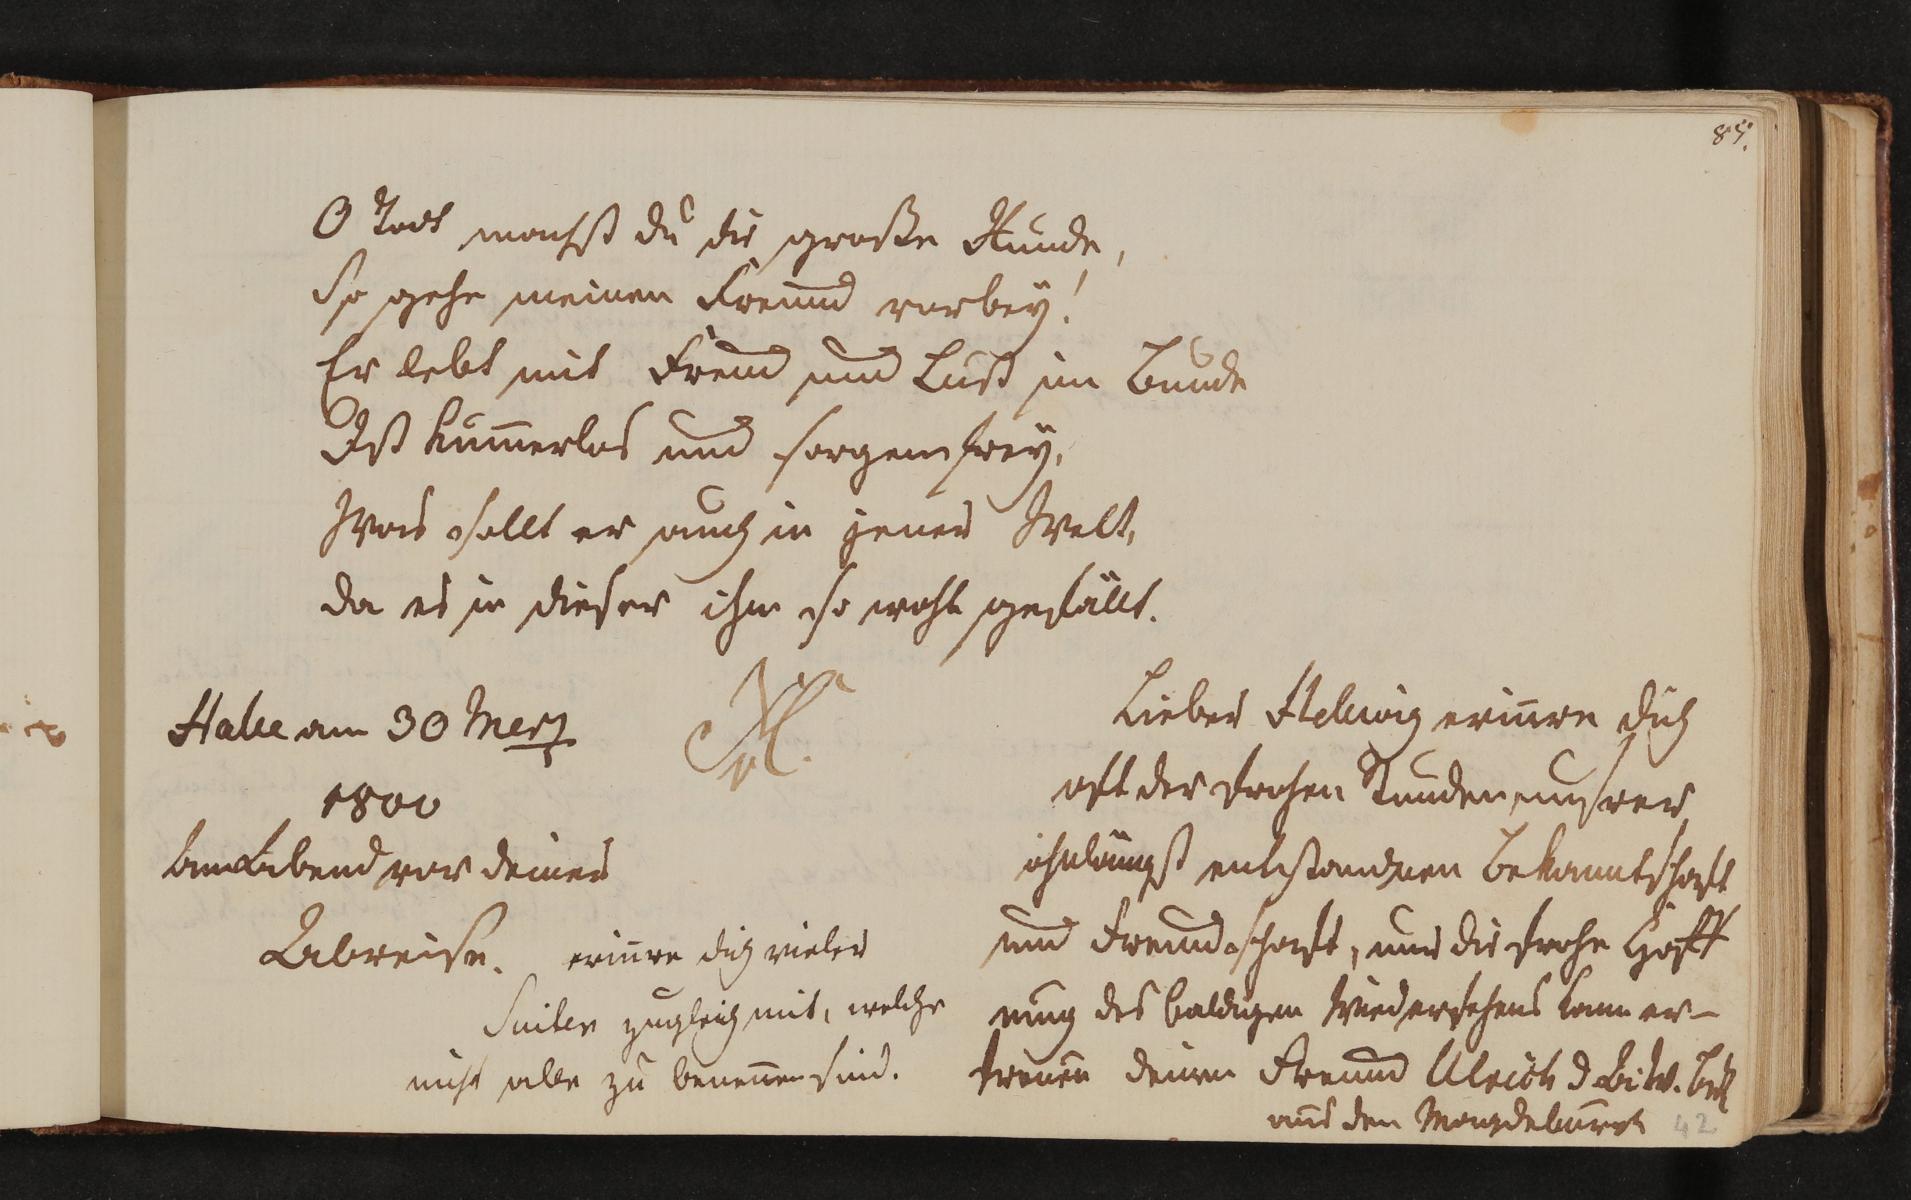 85.
O Todt machst du die große Runde,
So gehe meinen Freund vorbey!
Er lebt mit Freud und Lust im Bunde
Ist kum̄erlos und sorgenfrey,
Was sollt er auch in jener Welt,
da es in dieser ihm so wohl gefällt.
Halle am 30 Merz
1800
am Abend vor deiner
Abreise.
erin̄re dich vieler
Suiten zugleich mit, welche
nicht alle zu benen̄en sind.
Lieber Helwig erin̄re dich
oft der frohen Stunden unsrer
ohnlängst entstandnen Bekanntschaft
und Freundschaft, nur die frohe Hoff
nung des baldigen Wiedersehens kann er-
freuen deinen Freund Ulrich d.
aus den Magdeburg
42